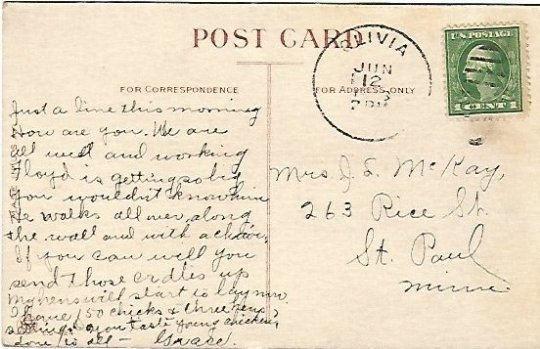 POST CARD
OLIVIA
JUN
12
U.S. POSTAGE
1 CENT 1
FOR CORRESPONDENCE
FOR ADDRESS ONLY
Just a line this morning
How are you. We are
all well and working
Floyd is getting so big
you wouldn't know him
He walks all over, along
the wall and with a chair,
If you can will you
send those up
My hens will start to lay
I have 150 chicks & three hens
taste young chicken,
love to all - Grace
Mrs J. L. McKay,
263 Rice St.
St. Paul
Minn.